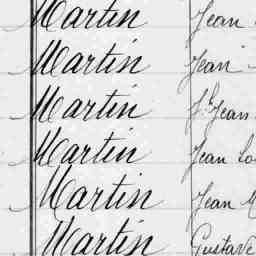 Martin Jean
Martin Jean
Martin Jean
Martin Jean
Martin Jean
Martin Gustave